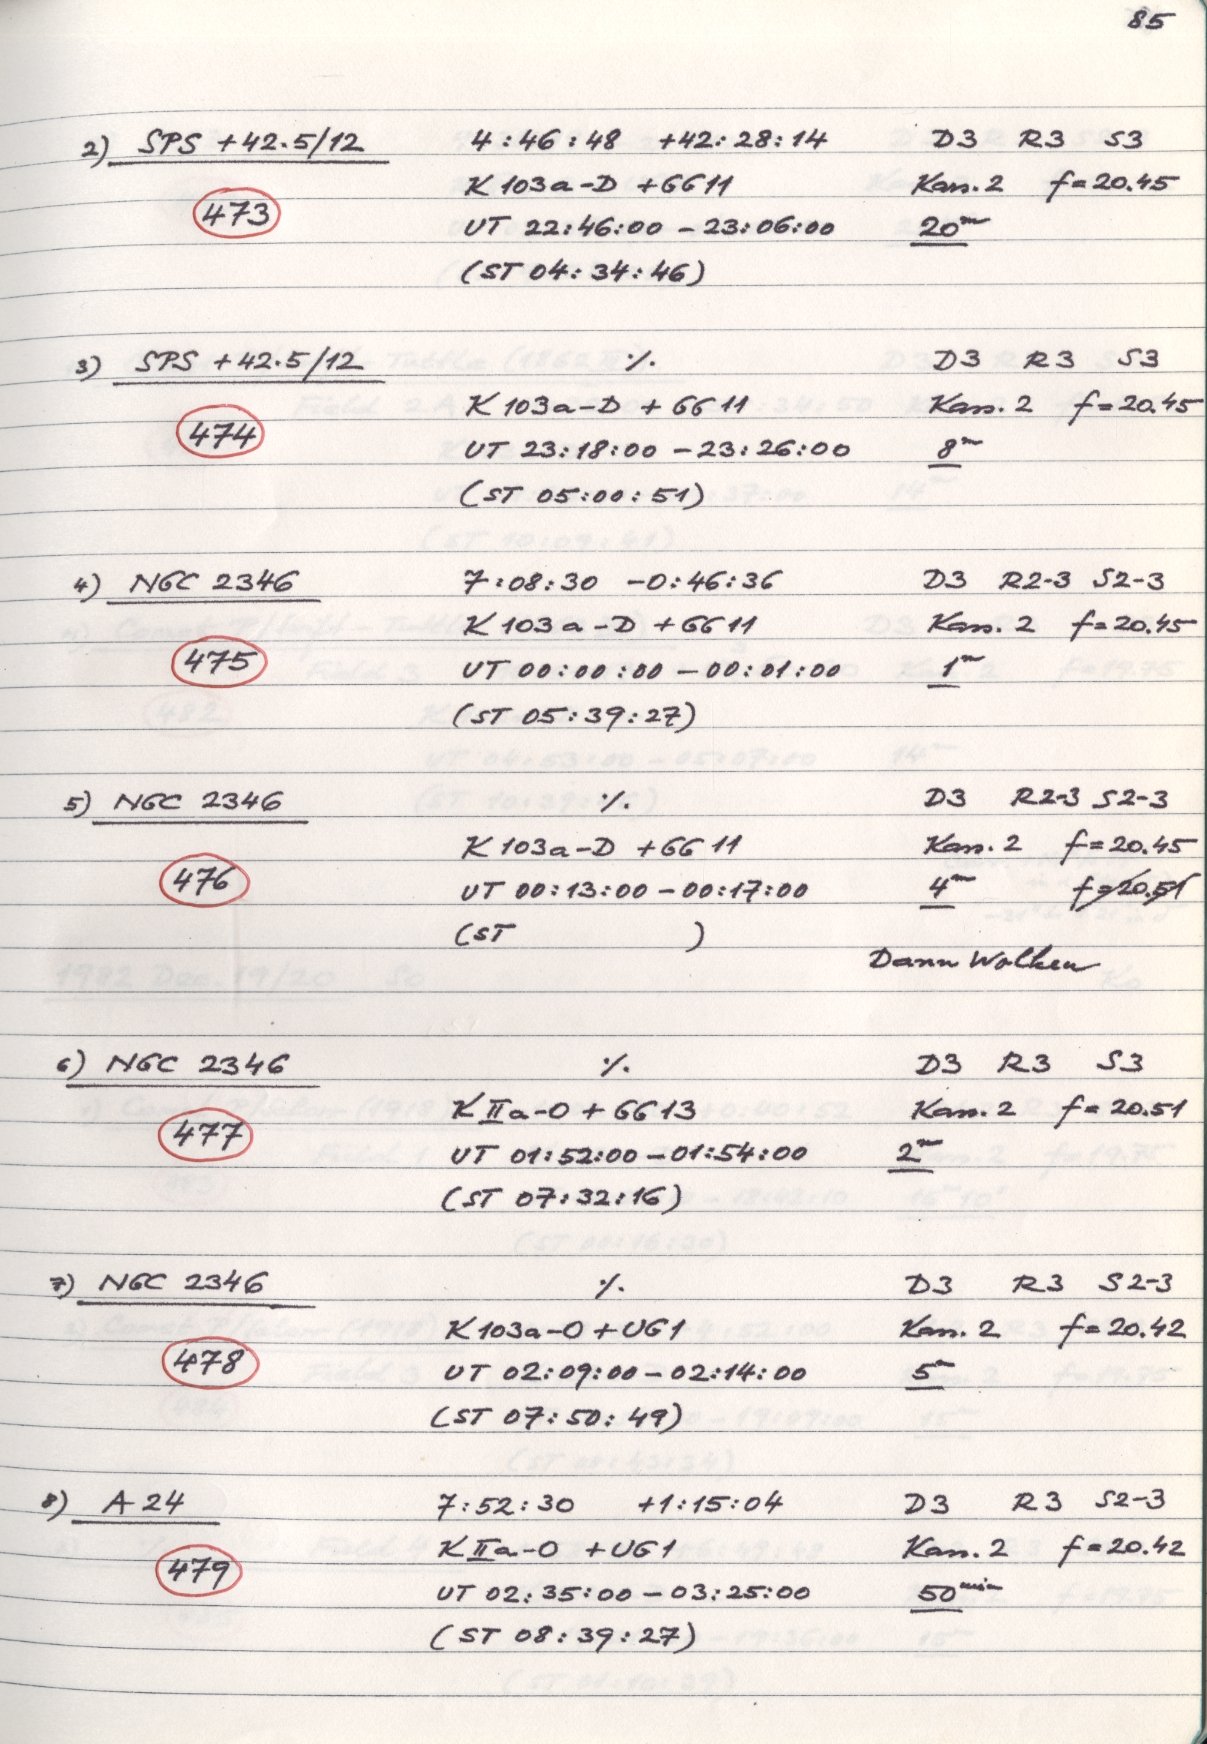 85
2) SPS +42.5/12 4:46:48 +42:28:14 D3 R3 S3
K 103a-D +GG11 Kass. 2 f=20.45
473 UT 22:46:00 - 23:06:00 20m
(ST 04:34:46)
3) SPS +42.5/12 ./. D3 R3 S3
K 103a-D + GG11 Kass. 2 f=20.45
474 UT 23:18:00 - 23:26:00 8m
(ST 05:00:51)
4) NGC 2346 7:08:30 -0:46:36 D3 R2-3 S2-3
K 103a-D + GG11 Kass. 2 f=20.45
475 UT 00:00:00 - 00:01:00 1m
(ST 05:39:27)
5) NGC 2346 ./. D3 R2-3 S2-3
K 103a-D +GG11 Kass. 2 f=20.45
476 UT 00:13:00 - 00:17:00 4m f=20.51
(ST )
Dann Wolken
6) NGC 2346 ./. D3 R3 S3
K IIa-O + GG13 Kass. 2 f=20.51
477 UT 01:52:00 - 01:54:00 2m
(ST 07:32:16)
7) NGC 2346 ./. D3 R3 S2-3
K 103a-O + UG1 Kass. 2 f=20.42
478 UT 02:09:00 - 02:14:00 5m
(ST 07:50:49)
8) A 24 7:52:30 +1:15:04 D3 R3 S2-3
K IIa-O + UG1 Kass. 2 f=20.42
479 UT 02:35:00 - 03:25:00 50min
(ST 08:39:27)